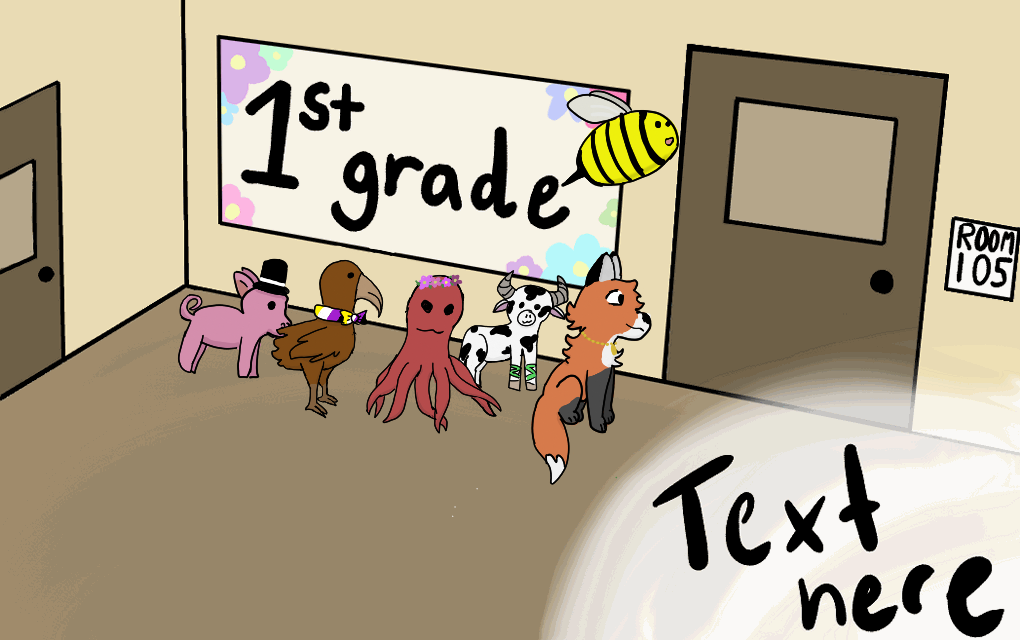 1st
grade
ROOM
105
Text
here